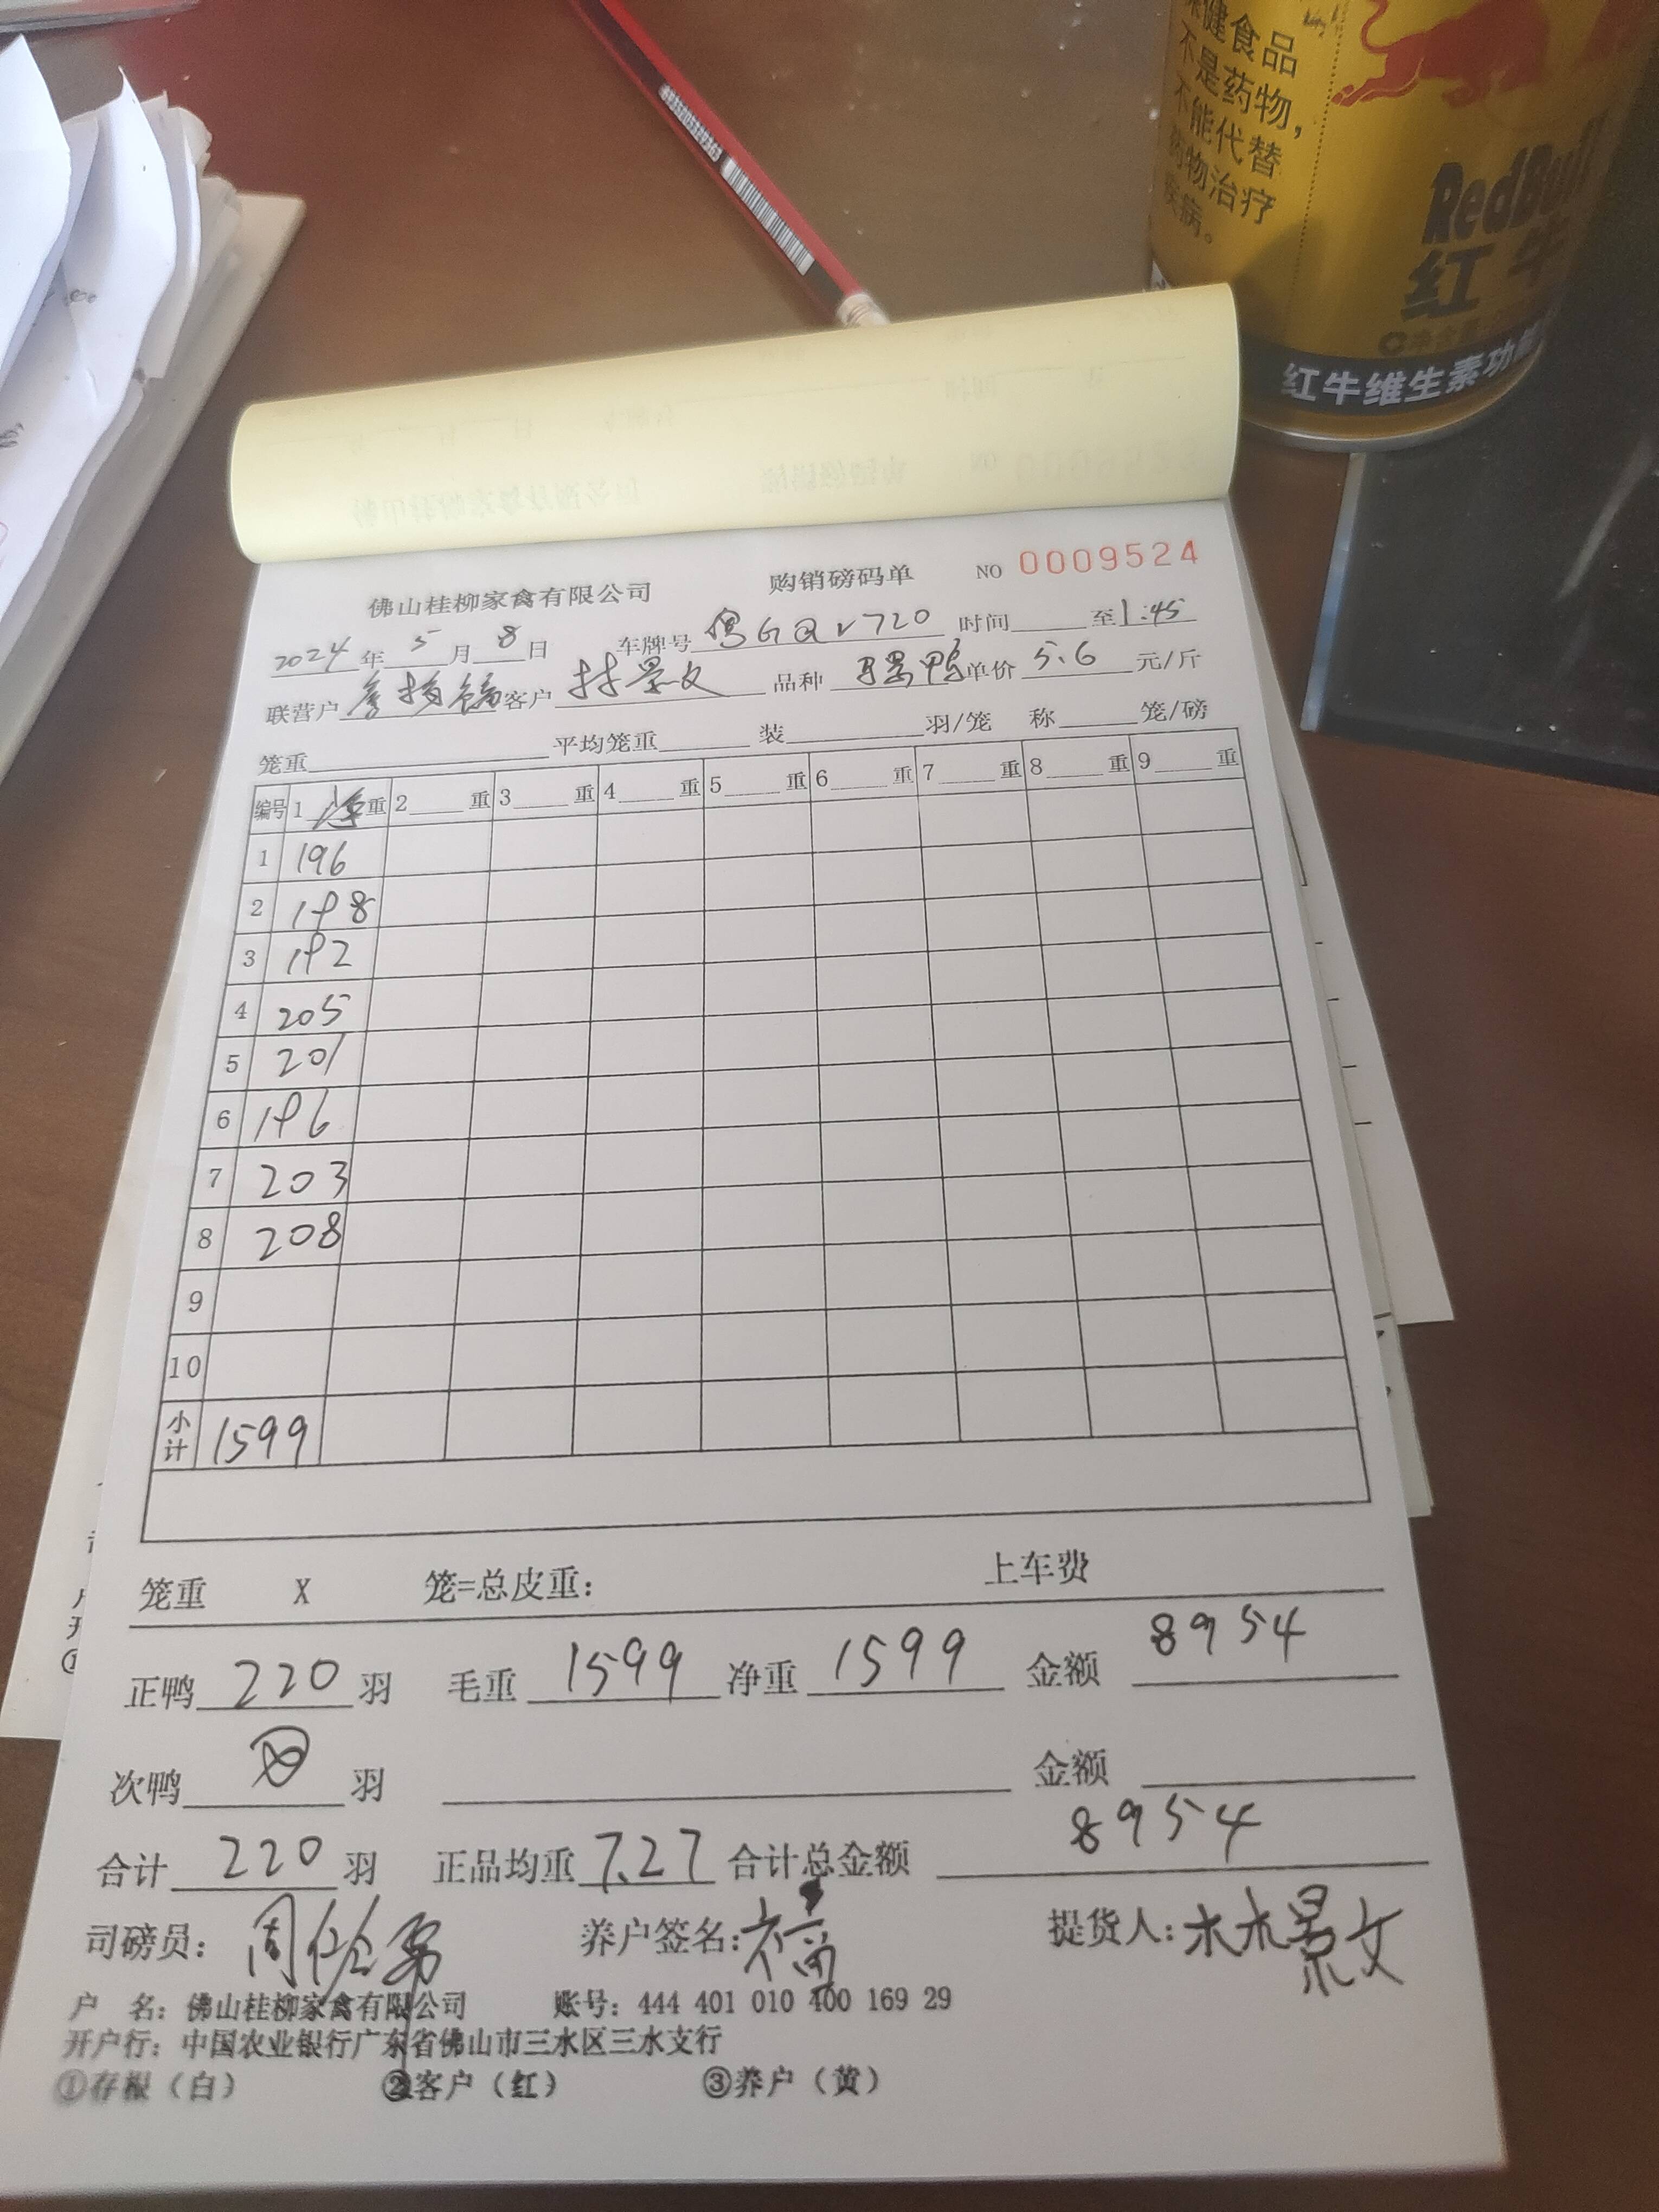 保健食品
不是药物，
不能代替
药物治疗
疾病。
RedBull
红牛
红牛维生素功能
6935205319363
佛山桂柳家禽有限公司 购销磅码单 NO 0009524
2024年5月8日 车牌号 粤GQV720 时间 至1:45
联营户 客户 林景文 品种 鸭 单价 5.6 元/斤
笼重 平均笼重 装 羽/笼 称 笼/磅
编号 1 净 重 2 重 3 重 4 重 5 重 6 重 7 重 8 重 9 重
1 196
2 198
3 192
4 205
5 201
6 196
7 203
8 208
9
10
小计 1599
笼重 X 笼=总皮重： 上车费
正鸭 220 羽 毛重 1599 净重 1599 金额 8954
次鸭 羽 金额
合计 220 羽 正品均重 7.27 合计总金额 8954
司磅员： 周 养户签名： 提货人：林景文
户 名：佛山桂柳家禽有限公司 账号：444 401 010 400 169 29
开户行：中国农业银行广东省佛山市三水区三水支行
①存根（白） ②客户（红） ③养户（黄）